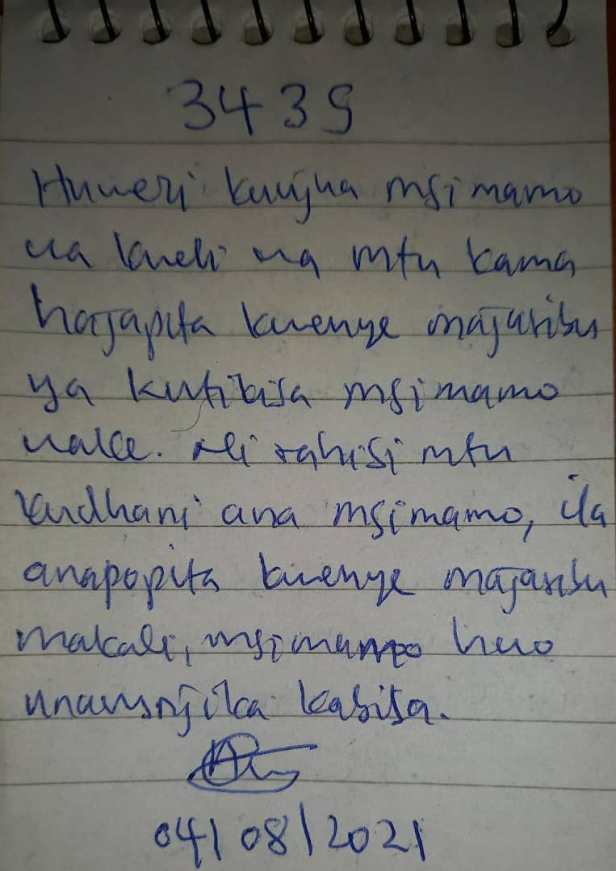 3439
Huwezi kuujua msimamo
wa kweli wa mtu kama
hajapita kwenye majaribu
ya kutikisa msimamo
wake. Ni rahisi mtu
kudhani ana msimamo, ila
anapopita kwenye majaribu
makali, msimamo huo
unavunjika kabisa.
04/08/2021